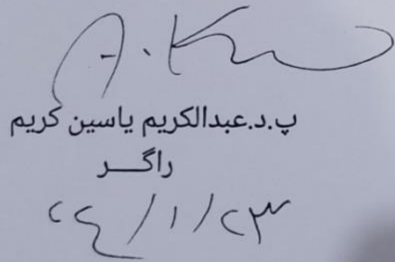 A.K
پ.د.عبدالكریم یاسین كریم
راگـــر
٢٤/١/٢٣